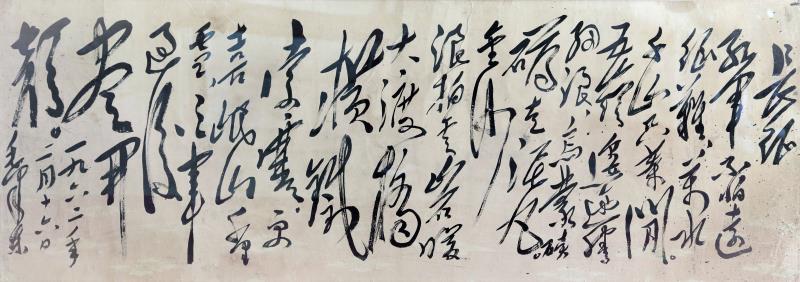 长征
红军不怕远
征难万水
千山只等闲
五岭逶迤腾
细浪乌蒙磅
礴走泥丸
金沙
浪拍云崖暖
大渡桥
横铁
索寒更
喜岷山千里
雪三军
过后
尽开
颜
一九六二年
二月十六日
毛泽东